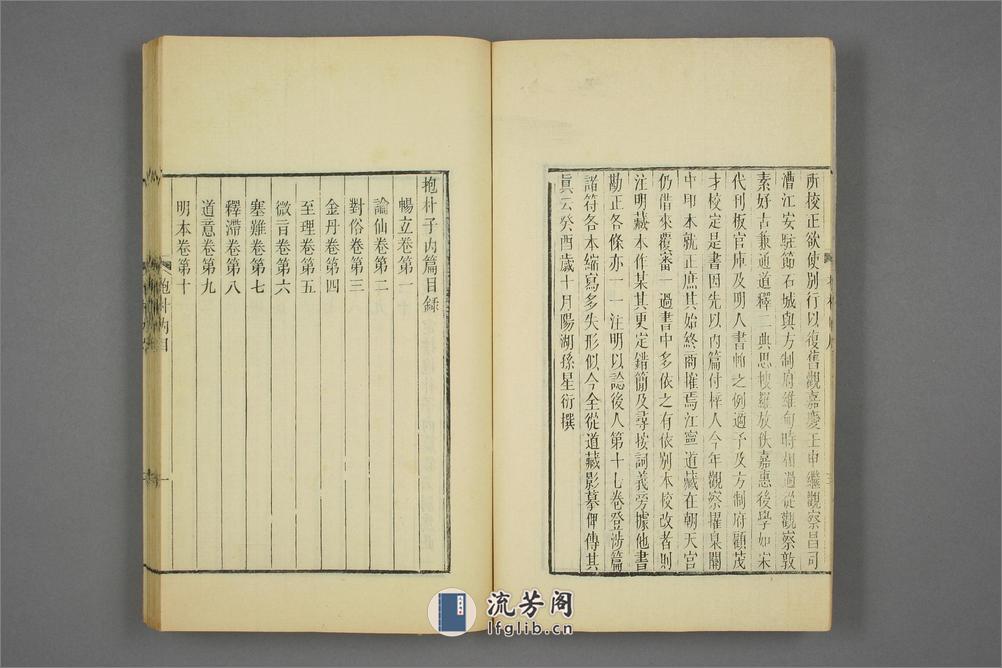 所校正欲使別行以復舊觀嘉慶壬申繼觀察昌司
漕江安駐節石城與方制府維甸時相過從觀察敦
素好古兼通道釋二典思搜羅放佚嘉惠後學如宋
代刊板官庫及明人書帕之例適予及方制府顧茂
才校定是書因先以內篇付梓人今年觀察擢臬關
中申本就正庶其始終商搉焉江寧道藏在朝天宮
仍借來覆審一過書中多依之有依別本校改者則
注明藏本作某其更定錯簡及尋按詞義旁據他書
勘正各條亦一一注明以諗後人第十七卷登涉篇
諸符各本縮寫多失形似今全從道藏影摹俾傳其
眞云癸酉歲十月陽湖孫星衍撰
抱朴子內篇目錄
暢立卷第一
論仙卷第二
對俗卷第三
金丹卷第四
至理卷第五
微言卷第六
塞難卷第七
釋滯卷第八
道意卷第九
明本卷第十
抱朴內目
一
流芳阁
lfglib.cn